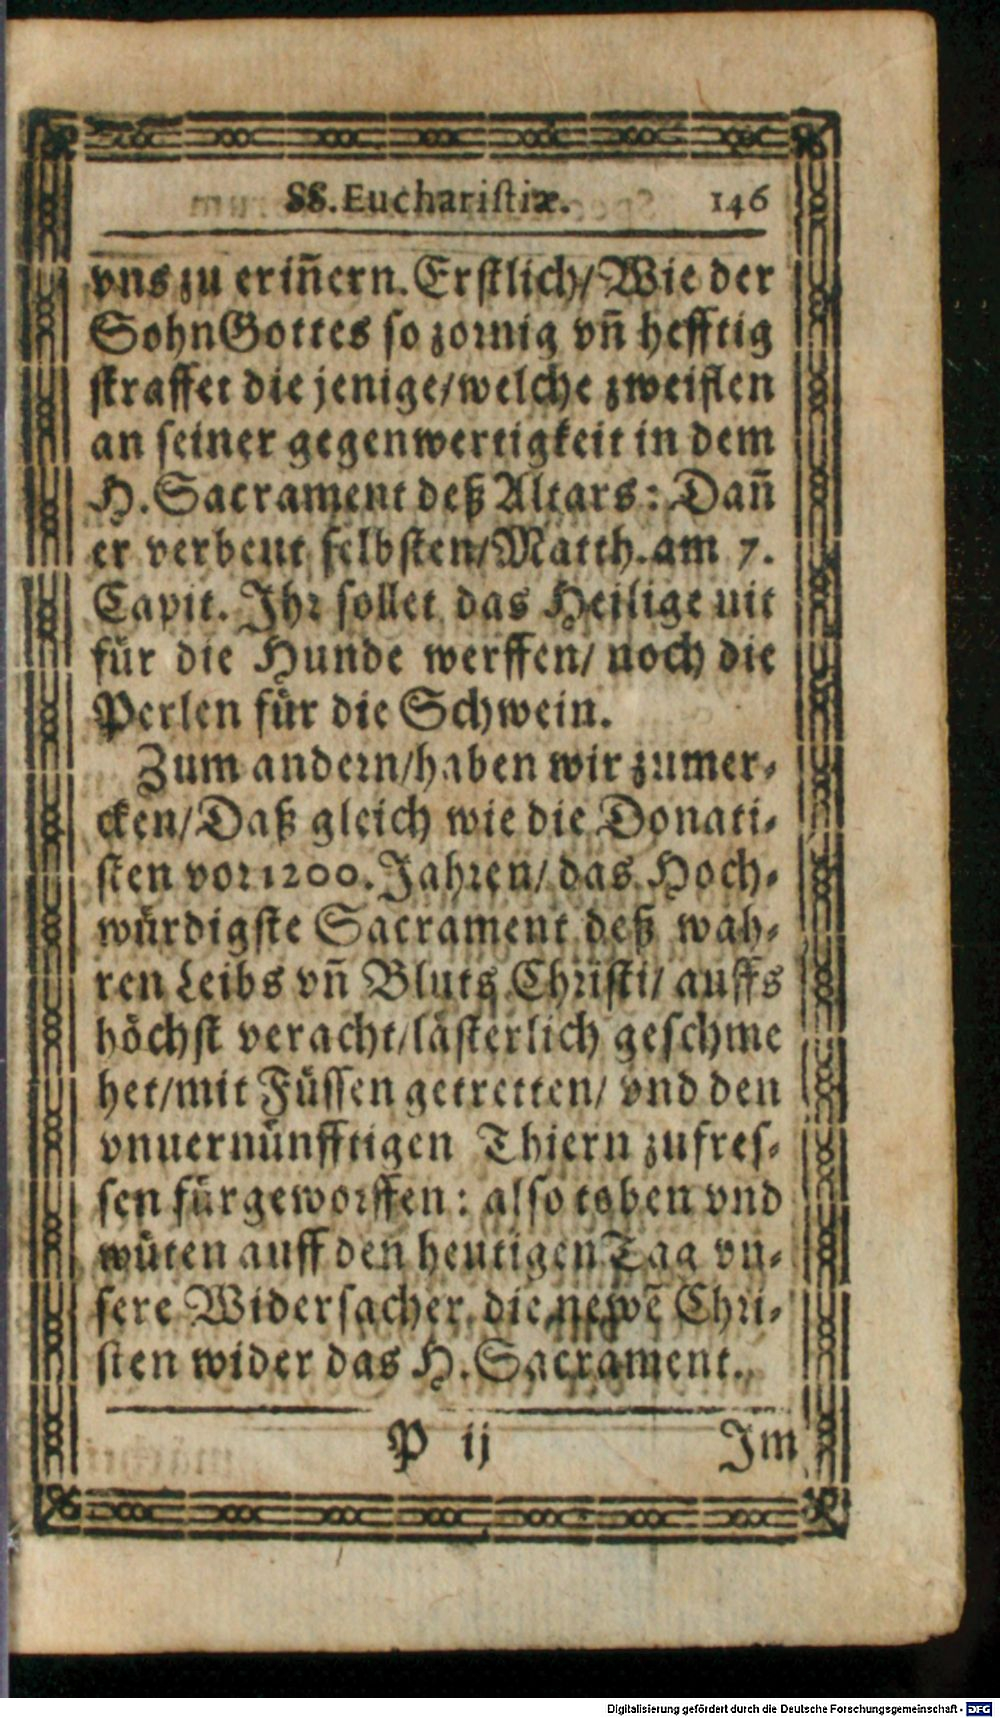 SS. Eucharistiæ. 146
vns zu eriñern. Erstlich/ Wie der
Sohn Gottes so zornig vñ hefftig
straffet die jenige/ welche zweiflen
an seiner gegenwertigkeit in dem
H. Sacrament deß Altars: Dañ
er verbeut selbsten/ Matth. am 7.
Capit. Ihr sollet das Heilige nit
für die Hunde werffen/ noch die
Perlen für die Schwein.
Zum andern/ haben wir zumer-
cken/ Daß gleich wie die Donati-
sten vor 1200. Jahren/ das Hoch-
würdigste Sacrament deß wah-
ren Leibs vñ Bluts Christi/ auffs
höchst veracht/ lästerlich geschme
het/ mit Füssen getretten/ vnd den
vnuernünfftigen Thiern zufres-
sen fürgeworffen: also toben vnd
wüten auff den heutigen Tag vn-
sere Widersacher die newẽ Chri-
sten wider das H. Sacrament.
P ij Im
Digitalisierung gefördert durch die Deutsche Forschungsgemeinschaft - DFG